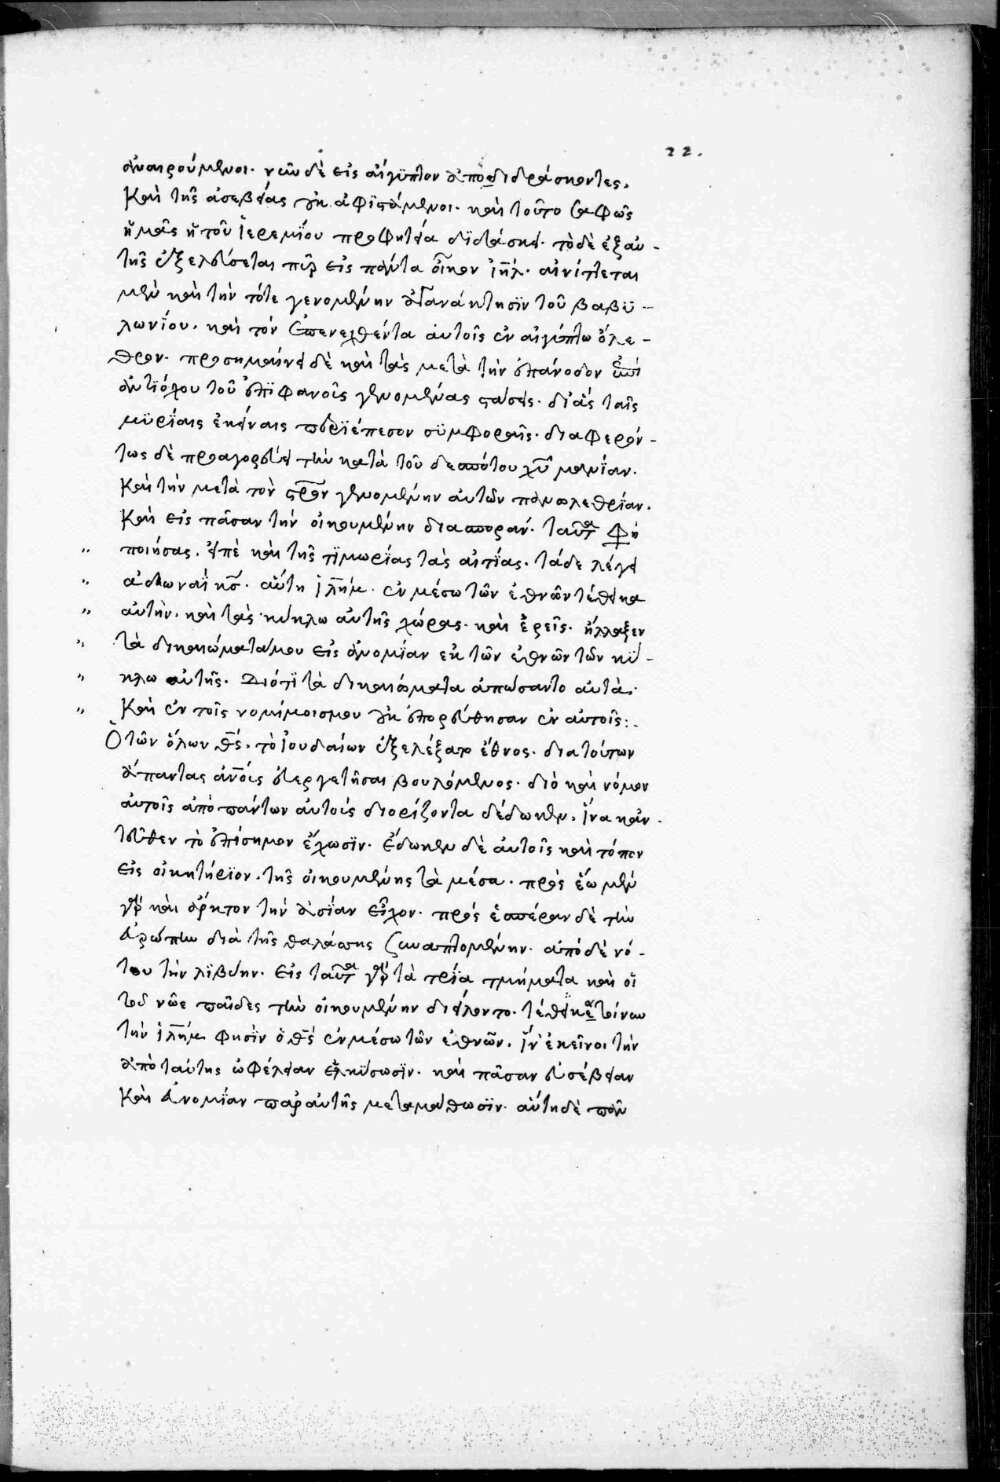 22.
ἀναιρούμενοι· νῦν δὲ εἰς αἴγυπτον ἀποδιδράσκοντες.
Καὶ τῆς ἀσεβείας οὐκ ἀφϊστάμενοι· καὶ τοῦτο σαφῶς
ἡμᾶς ἡ τοῦ ἱερεμΐου προφητεία διδάσκει· τὸ δὲ ἐξ αὐ-
τῆς ἐξελεύσεται πῦρ εἰς πάντα οἶκον ἰηλ· αἰνίττεται
μὲν καὶ τὴν τότε γενομένην ἀγανάκτησϊν τοῦ βαβυ-
λωνΐου· καὶ τὸν ἐπενεχθέντα αὐτοῖς ἐν αἰγύπτω ὄλε-
θρον· προσημαίνει δὲ καὶ τὰς μετὰ τὴν ἐπάνοδον ἐπὶ
ἀντιόχου τοῦ ἐπϊφανοῦς γενομένας στάσεις· δι' ἃς ταῖς
μϋρίαις ἐκείναις περϊέπεσον σϋμφοραῖς· διαφερόν-
τως δὲ προαγορεύει τὴν κατὰ τοῦ δεσπότου χυ μανΐαν.
Καὶ τὴν μετὰ τὸν στρον γενομένην αὐτῶν πανωλεθρίαν.
Καὶ εἰς πᾶσαν τὴν οἰκουμένην διασποράν· ταῦτα φη
ποιήσας. εἶπε καὶ τῆς τϊμωρίας τὰς αἰτίας. τάδε λέγει
ἀδωναῒ κς· αὕτη ἱλημ· ἐν μέσω τῶν ἐθνῶν τέθεικα
αὐτήν· καὶ τὰς κύκλω αὐτῆς χώρας· καὶ ἐρεῖς· ἤλλαξεν
τὰ δικαιώματά μου εἰς ἀνομίαν ἐκ τῶν ἐθνῶν τῶν κύ-
κλω αὐτῆς· Διότϊ τὰ δικαιώματα ἀπώσαντο αὐτά.
Καὶ ἐν τοῖς νομίμοισμου οὐκ ἐπορεύθησαν ἐν αὐτοῖς:
Ὁ τῶν ὅλων θς· τὸ ἰουδαίων ἐξελέξατο ἔθνος· δια τούτων
ἅπαντας ἀνους εὐεργετῆσαι βουλόμενος· διὸ καὶ νόμον
αὐτοῖς ἀπὸ πάντων αὐτοὺς διορίζοντα δέδωκεν. ἵνα κἀν-
τεῦθεν τὸ ἐπίσημον ἔχωσϊν· ἔδωκεν δὲ αὐτοῖς καὶ τόπον
εἰς οἰκητήρϊον. τῆς οἰκουμένης τὰ μέσα· πρὸς ἕω μὲν
γὰρ καὶ ἄρκτον τὴν ἀσΐαν εἶχον· πρὸς ἑσπέραν δὲ τὴν
ἐυρώπην διὰ τῆς θαλάττης συναπτομένην· ἀπὸ δὲ νό-
του τὴν λϊβύην· εἰς ταῦτα γὰρ τὰ τρΐα τμήματα καὶ οἱ
τοῦ νῶε παῖδες τὴν οἰκουμένην διείλοντο· τέθεικα τοίνυν
τὴν ἱλημ φησϊν ὁ θς ἐν μέσω τῶν ἐθνῶν. ἵν' ἐκεῖνοι τὴν
ἀπὸ ταύτης ὠφέλειαν ἑλκύσωσϊν· καὶ πᾶσαν εὐσέβειαν
Καὶ ἐυνομΐαν παρ' αὐτῆς μεταμάθωσϊν· αὕτη δὲ πᾶν